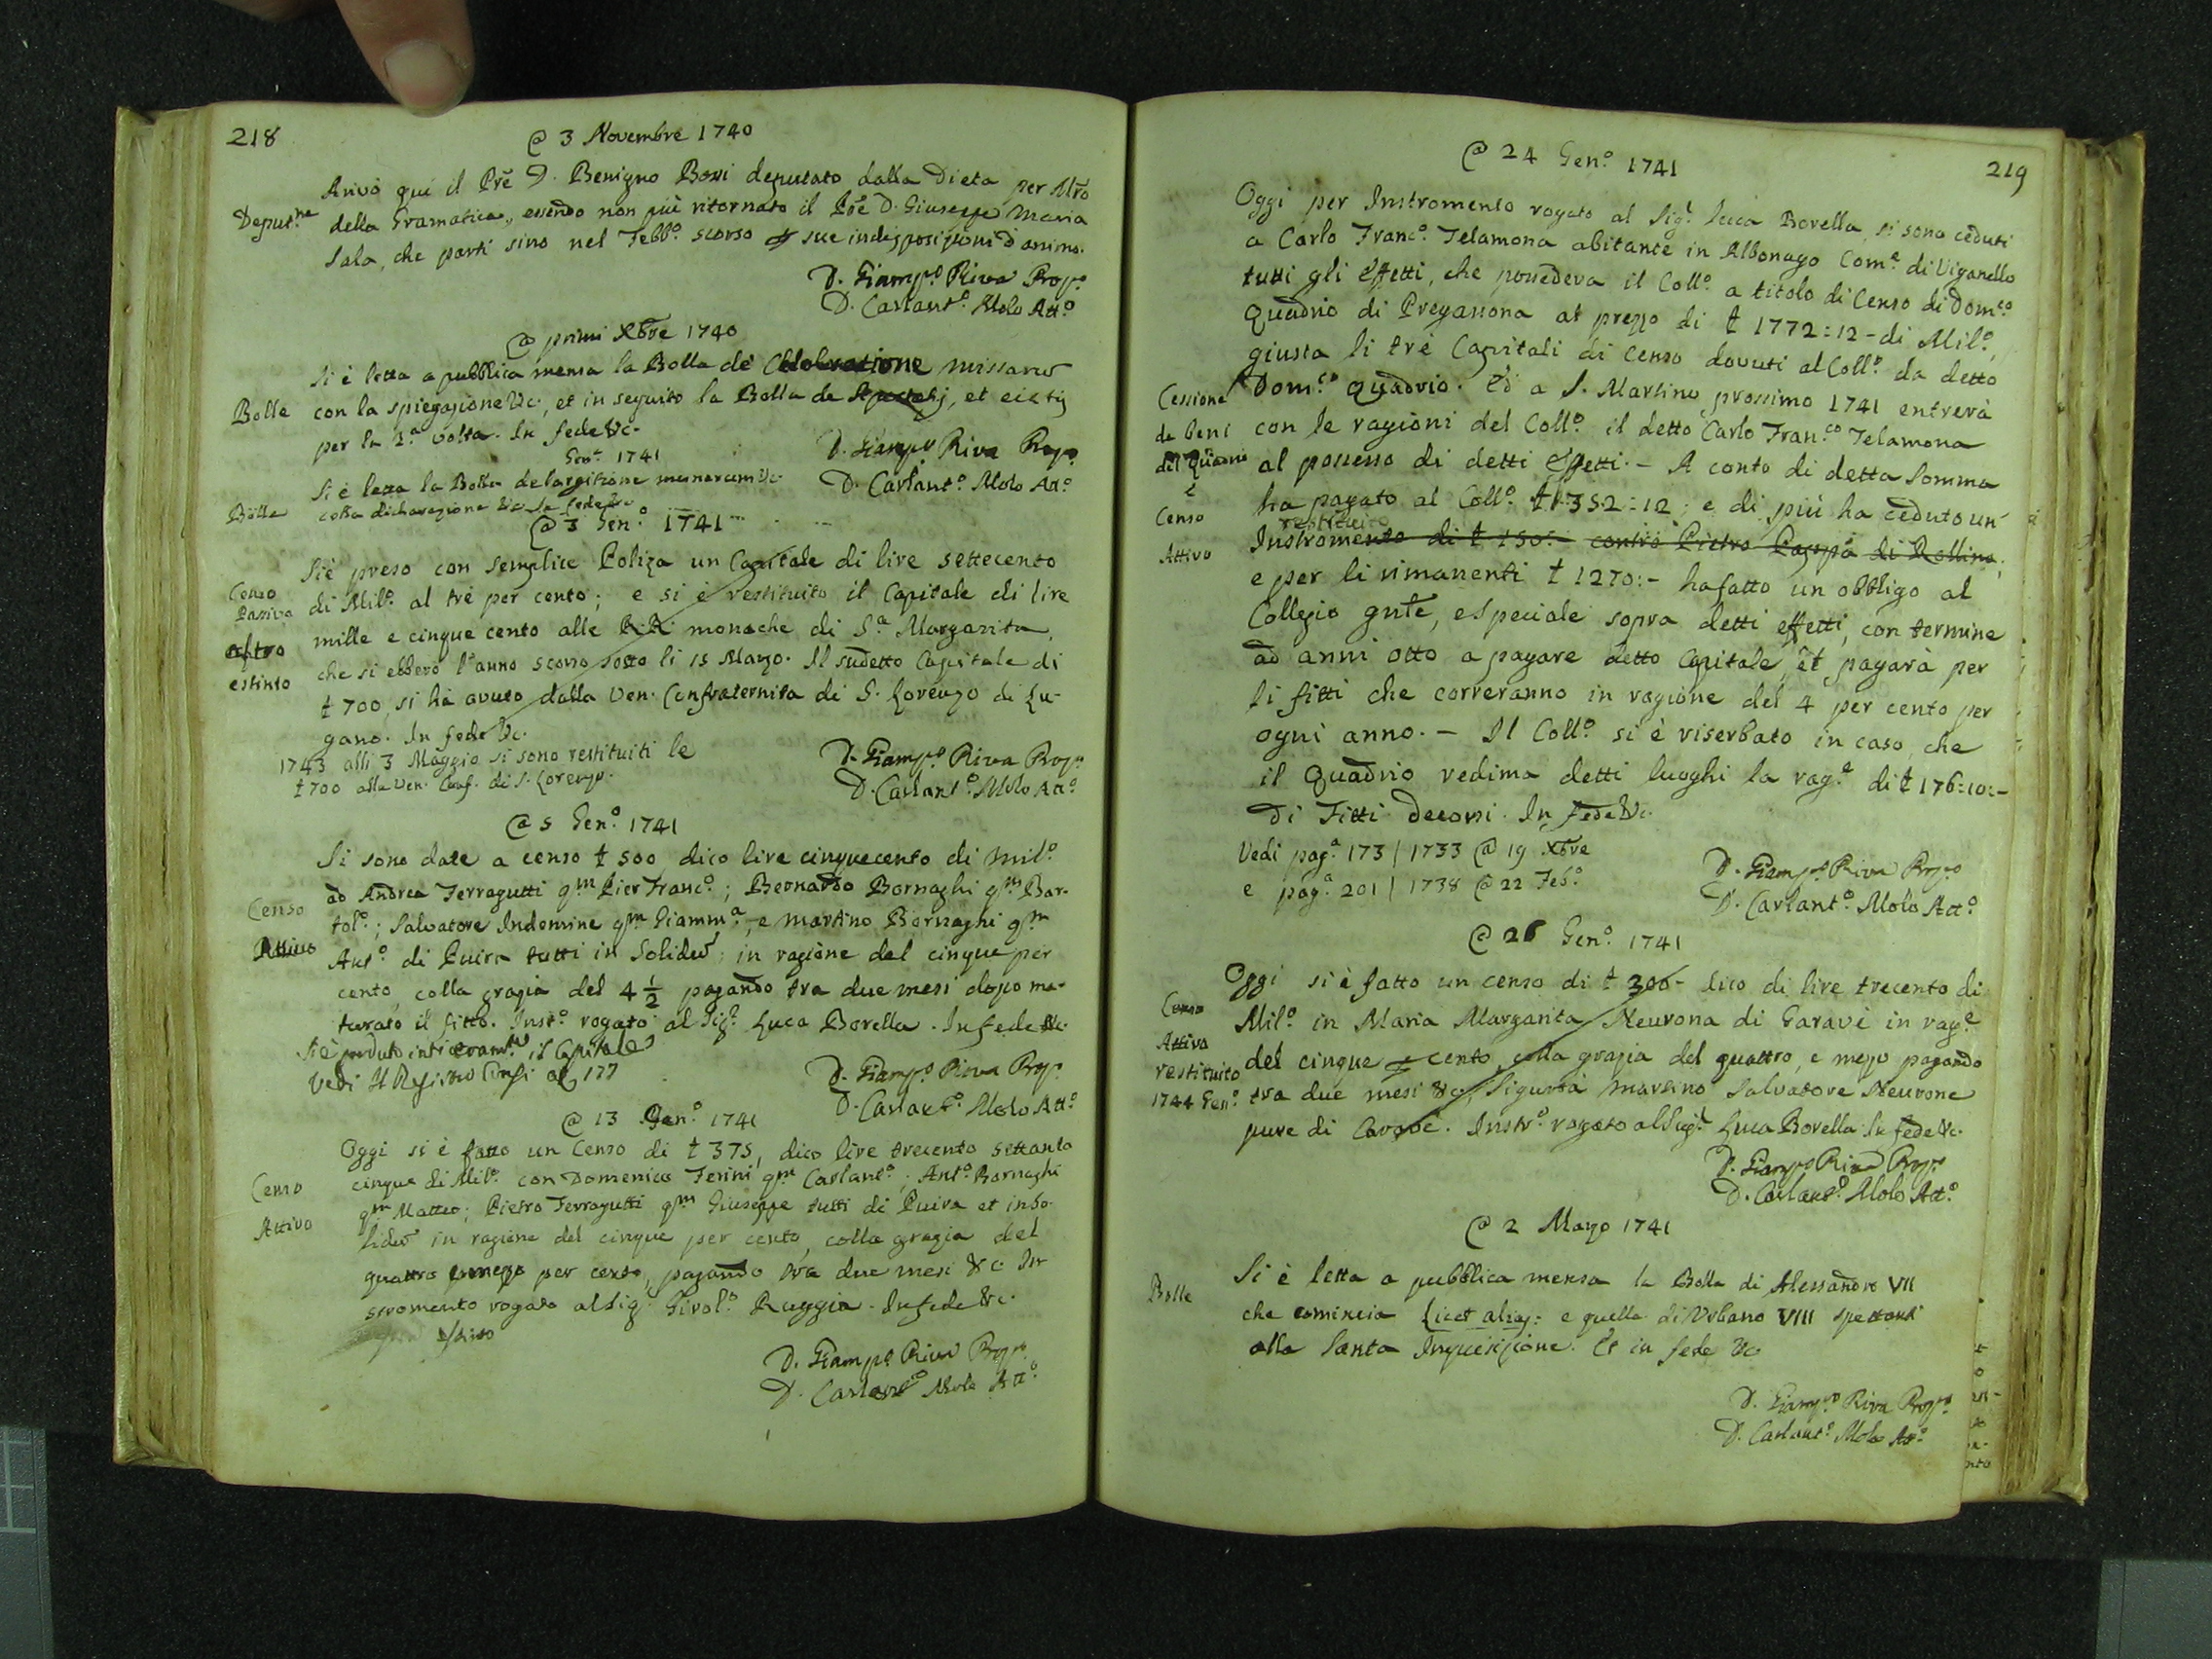 218
@ 3 Novembre 1740
Arivò quì il Prē D. Benigno Bossi deputato dalla Dieta per Mrō
Deput.ne della Gramatica, essendo non più ritornato il Prē D. Giuseppe Maria
Sala, che partì sino nel Febb.o scorso p sue indisposizioni d'animo.
D. Giamp.o Riva Prop.o
D. Carlant.o Molo Att.o
@ primi Xbre 1740
Si è letta a pubblica mensa la Bolla de Celebratione missarū
Bolle con la spiegazione &c., et in seguito la Bolla de Apostatis, et eiectis
per la 2.a volta. In fede &c.
D. Giamp.o Riva Prop.o
D. Carlant.o Molo Att.o
Gen.o 1741
Si è letta la Bolla de largitione munerum &c.
Bolla colla dichiarazione &c. In fede &c.
@ 3 Gen.o 1741
Si è preso con semplice Poliza un Capitale di lire settecento
Censo Passivo di Mil.o al trè per cento; e si è restituito il Capitale di lire
mille e cinque cento alle RR. monache di S.a Margarita,
altro estinto che si ebbero l'anno scorso sotto li 15 Marzo. Il sudetto Capitale di
ł 700, si hà avuto dalla Ven. Confraternita di S. Lorenzo di Lu-
gano. In fede &c.
1743 alli 3 Maggio si sono restituiti le
ł 700 alla Ven. Conf. di S. Lorenzo.
D. Giamp.o Riva Prop.o
D. Carlant.o Molo Att.o
@ 5 Gen.o 1741
Si sono date a censo ł 500 dico lire cinquecento di Mil.o
ad Andrea Ferragutti q.m Pier Franc.o; Bernardo Bornaghi q.m Bar-
Censo tol.o; Salvatore Indemine q.m Giamm.a, e Martino Bornaghi q.m
Attivo Ant.o di Puira tutti in Solidū; in ragione del cinque per
cento, colla grazia del 4 1/2 pagando tra due mesi dopo ma-
turato il fitto. Inst.o rogato al Sig.r Luca Borella. In fede &c.
Si è perduto intieram.te il Capitale
Vedi Il Registro Censi 177
D. Giamp.o Riva Prop.
D. Carlant.o Molo Att.o
@ 13 Gen.o 1741
Oggi si è fatto un Censo di ł 375, dico lire trecento settanta
Censo cinque di Mil.o con Domenico Ferini q.m Carlant.o; Ant.o Bornaghi
Attivo q.m Matteo; Pietro Ferragutti q.m Giuseppe tutti di Puira et in so-
lidū in ragione del cinque per cento, colla grazia del
quattro e mezzo per cento, pagando tra due mesi &c. In-
stromento rogato al Sig.r Girol.o Ruggia. In fede &c.
Estinto
D. Giamp.o Riva Prop.o
D. Carlant.o Molo Att.o
219
@ 24 Gen.o 1741
Oggi per Instromento rogato al Sig.r Luca Borella, si sono ceduti
a Carlo Franc.o Telamona abitante in Albonago Com.e di Viganello
tutti gli effetti, che possedeva il Coll.o a titolo di Censo di Dom.co
Quadrio di Pregassona al prezzo di ł 1772:12 - di Mil.o,
giusta li trè Capitali di Censo dovuti al Coll.o da detto
Cessione Dom.co Quadrio. Ed a S. Martino prossimo 1741 entrerà
de beni con le ragioni del Coll.o il detto Carlo Fran.co Telamona
del Quadrio al possesso di detti effetti. - A conto di detta Somma
è
Censo ha pagato al Coll.o ł 352:12; e di più ha ceduto un
restituito
Attivo Instromento di ł 150:- contro Pietro Pagapà di Rollino;
e per li rimanenti ł 1270:- ha fatto un obbligo al
Collegio gnte, e speciale sopra detti effetti, con termine
ad anni otto a pagare detto Capitale, et pagarà per
li fitti che correranno in ragione del 4 per cento per
ogni anno. - Il Coll.o si è riserbato in caso che
il Quadrio redima detti luoghi la rag.e di ł 176:10:-
di Fitti decorsi. In fede &c.
Vedi pag.a 173 / 1733 @ 19 Xbre
e pag.a 201 / 1738 @ 22 Feb.o
D. Giamp.o Riva Prop.o
D. Carlant.o Molo Att.o
@ 26 Gen.o 1741
Oggi si è fatto un censo di ł 300- dico di lire trecento di
Censo Mil.o in Maria Margarita Neurona di Garavè in rag.e
Attivo
restituito del cinque p cento, colla grazia del quattro, e mezzo pagando
1744 Gen.o tra due mesi &c, Sigurtà Martino Salvatore Neurone
pure di Caroè. Instr.o rogato al Sig.r Luca Borella. In fede &c.
D. Giamp.o Riva Prop.o
D. Carlant.o Molo Att.o
@ 2 Marzo 1741
Si è letta a pubblica mensa la Bolla di Alessandro VII
Bolle che comincia Licet alias: e quella di Urbano VIII spettanti
alla Santa Inquisizione. Et in fede &c
D. Giamp.o Riva Prop.o
D. Carlant.o Molo Att.o